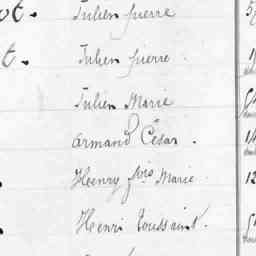 Julien pierre
t. Julien pierre
Julien Marie
armand César.
Henry fois Marie
Henri Toussaint.